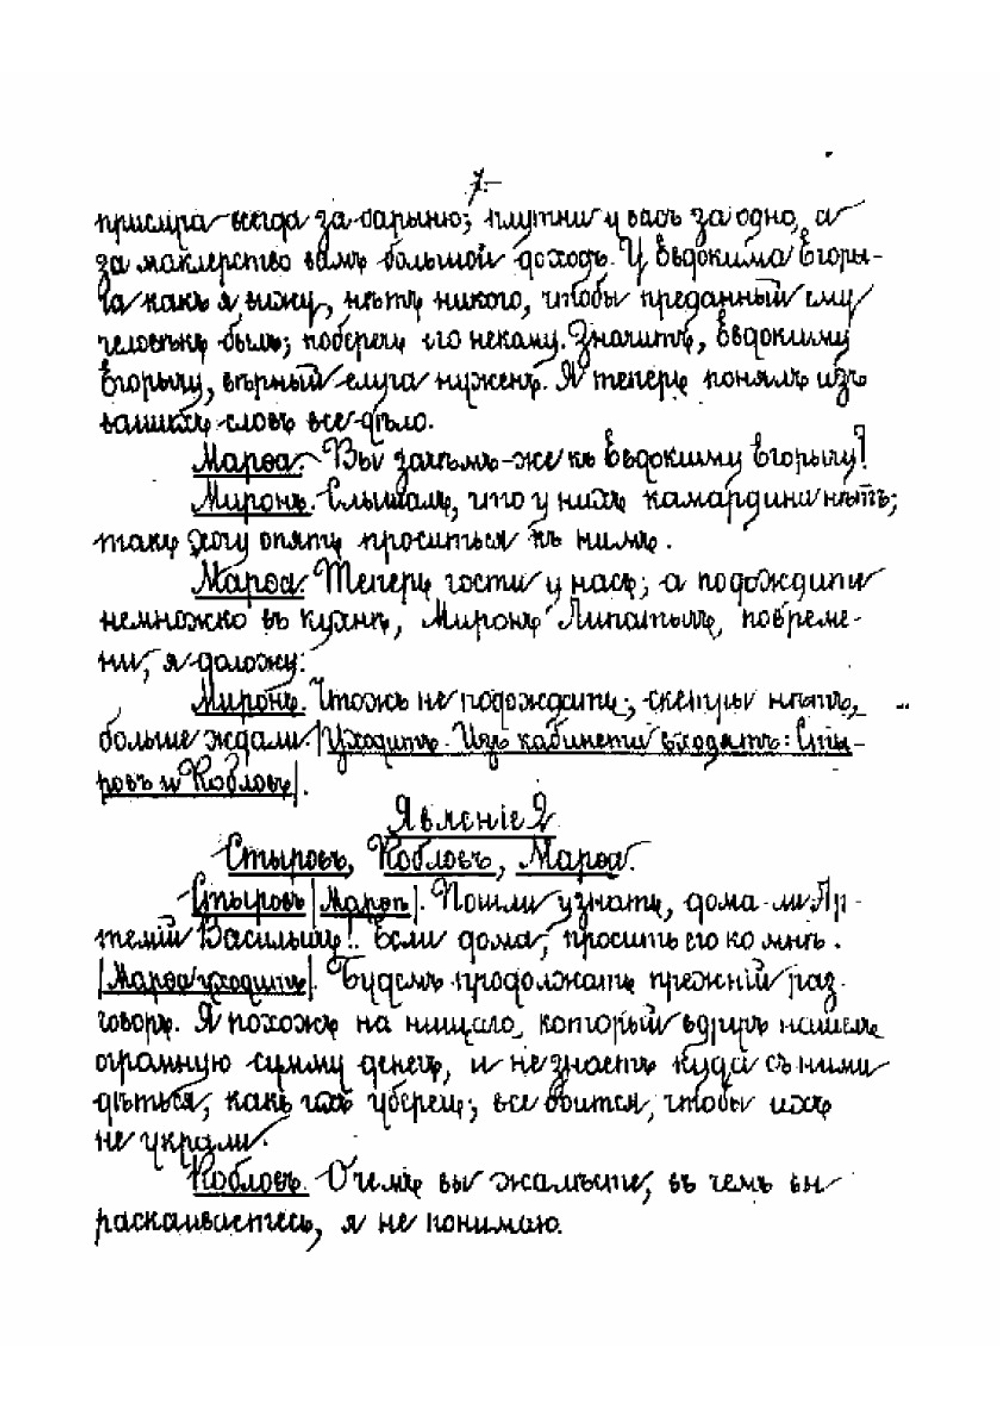 7.
прислуга всегда за барыню; плутни у васъ за одно, а
за маклерство вамъ большой доходъ. У Евдокима Егоры-
ча какъ я вижу, нѣтъ никого, чтобы преданный ему
человѣкъ былъ; поберечь его некому. Значитъ, Евдокиму
Егорычу, вѣрный слуга нуженъ. Я теперь понялъ изъ
вашихъ словъ все дѣло.
Марѳа. Вы зачѣмъ-же къ Евдокиму Егорычу?
Миронъ. Слышалъ, что у нихъ камардина нѣтъ;
такъ хочу опять проситься къ нимъ.
Марѳа. Теперь гости у насъ; а подождите
немножко въ кухнѣ, Миронъ Липатычъ, повреме-
ни, я доложу.
Миронъ. Чтожъ не подождать; скетры нѣтъ,
больше ждали. |Уходитъ. Изъ кабинета входятъ: Сты-
ровъ и Кобловъ|.
Явленіе 2
Стыровъ, Кобловъ, Марѳа.
Стыровъ |Марѳѣ|. Пошли узнать, дома-ли Ар-
темій Васильичъ!. Если дома, просить его ко мнѣ.
|Марѳа уходитъ|. Будемъ продолжать прежній раз-
говоръ. Я похожъ на нищаго, который вдругъ нашелъ
огромную сумму денегъ, и не знаетъ куда съ ними
дѣться, какъ ихъ уберечь; все боится, чтобы ихъ
не украли.
Кобловъ. О чемъ вы жалѣете, въ чемъ вы
раскаиваетесь, я не понимаю.